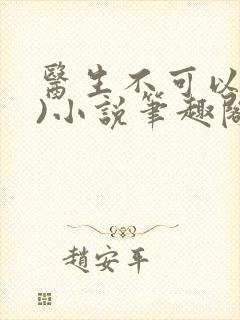 醫生不可以
)小說筆趣閣
趙安平